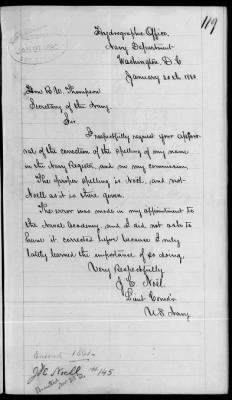 119
Hydrographic Office,
Navy Department
Washington D.C
January 20th 1880
Hon R W Thompson
Secretary of the Navy
Sir
I respectfully request your approv-
al of the correction of the spelling of my name
in the Navy Register, and in my commission.
The proper spelling is Noël, and not
Noell as it is there given.
The error was made in my appointment to
the Naval Academy, and I did not ask to
have it corrected before because I only
lately learned the importance of so doing.
Very Respectfully
J. E. Noël
Lieut Comd'r
U.S. Navy
J E Noell
#145.